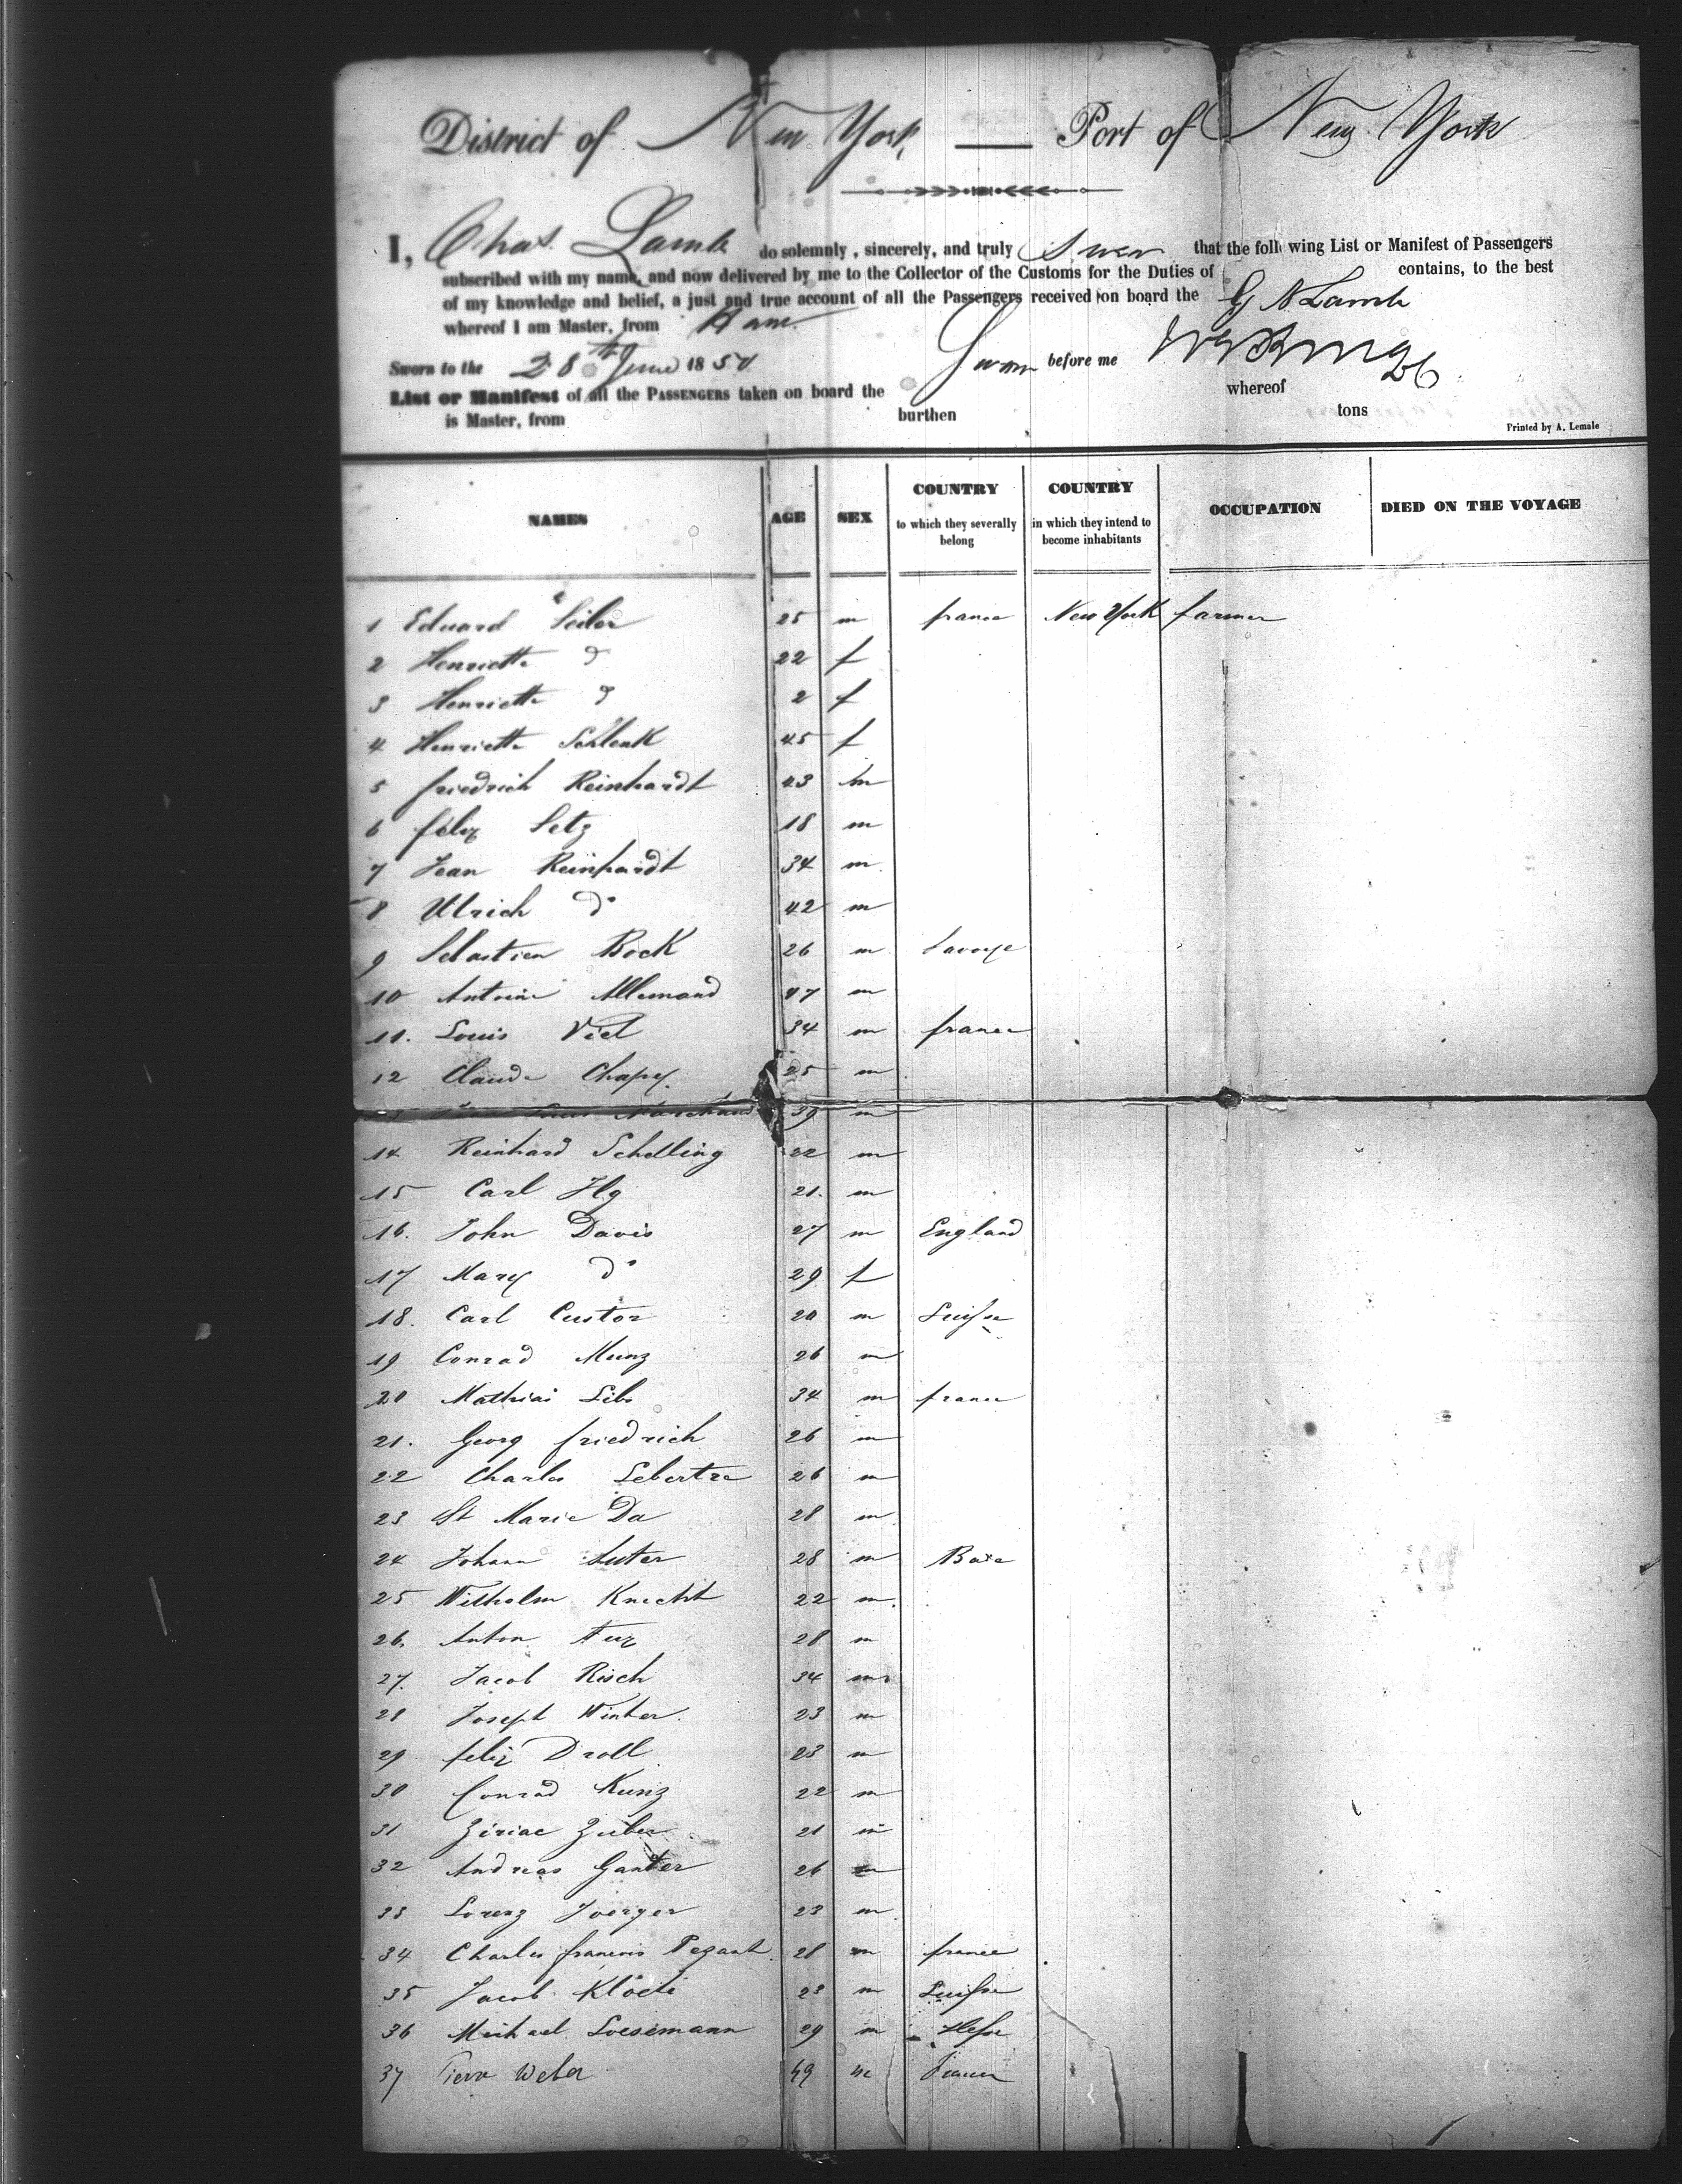 District of New York Port of New York
I, Chas. Lamb do solemnly, sincerely, and truly Swear that the foll wing List or Manifest of Passengers
subscribed with my name, and now delivered by me to the Collector of the Customs for the Duties of contains, to the best
of my knowledge and belief, a just and true account of all the Passengers received on board the
whereof I am Master, from
Sworn to the 28th June 1850 before me
List or Manifest of all the PASSENGERS taken on board the whereof
is Master, from burthen tons
Printed by A. Lemale
NAMES AGE SEX COUNTRY to which they severally belong COUNTRY in which they intend to become inhabitants OCCUPATION DIED ON THE VOYAGE
1 Eduard Seiler 25 m france New York farmer
2 Henriette do 22 f
3 Henriette do 2 f
4 Henriette Schlenk 45 f
5 friedrich Reinhardt 43 m
6 felix Setz 18 m
7 Jean Reinhardt 34 m
8 Ulrich do 42 m
9 Sebastien Bock 26 m Savoye
10 Antoine Allemand 47 m
11. Louis Viel 34 m france
12 Claude Chapy 25 m
Marchand 39 m
14 Reinhard Schelling 22 m
15 Carl Ilg 21. m
16. John Davis 27 m England
17 Mary do 29 f
18. Carl Custor 20 m Suisse
19 Conrad Munz 26 m
20 Mathias Lib 34 m france
21. Georg friedrich 26 m
22 Charles Lebertre 26 m
23 St Marie Da 28 m
24 Johann Suter 28 m
25 Wilhelm Knecht 22 m.
26. Anton 28 m
27. Jacob Risch 34 m
28 Joseph Winter. 23 m
29 felix Droll 23 m
30 Conrad Kunz 22 m
31 Ziriac Zuber 21 m
32 Andreas Ganter 26 m
33 Lorenz Joerger 23 m
34 Charles francois Pezant 28 m france
35 Jacob Klöti 23 m Suisse
36 Michael Loesemann 29 m Hesse
37 Pierre Weber 49 m France